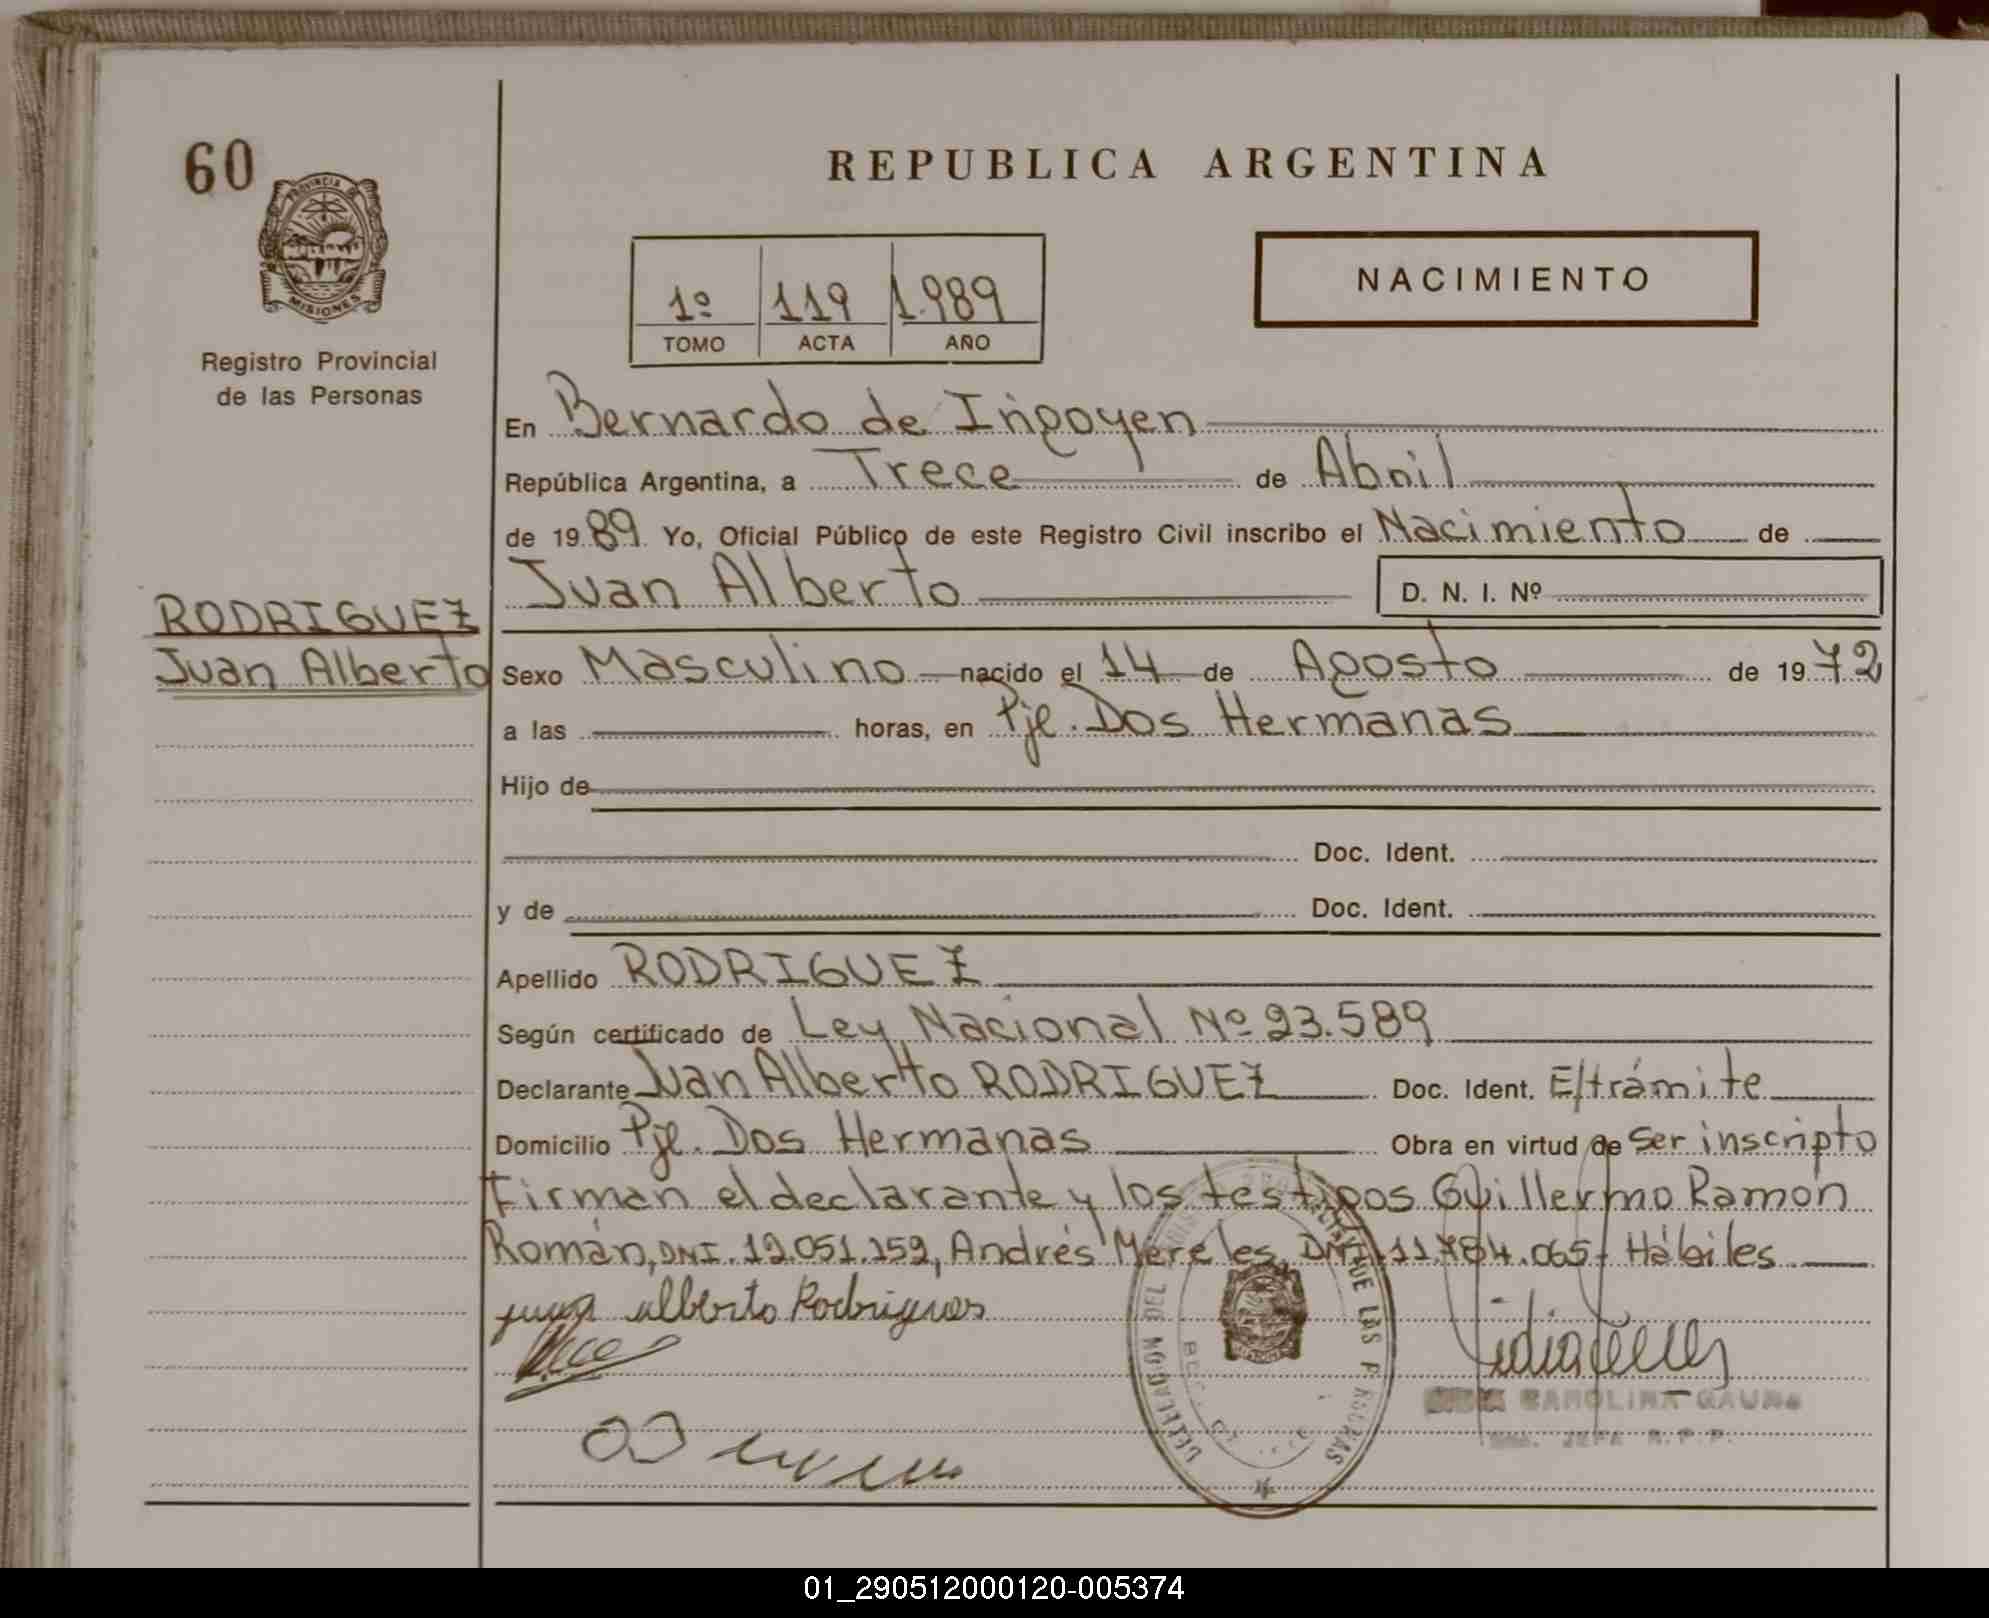 60
PROVINCIA DE
MISIONES
Registro Provincial
de las Personas
REPUBLICA ARGENTINA
1º 119 1.989
TOMO ACTA AÑO
NACIMIENTO
En Bernardo de Irigoyen
República Argentina, a Trece de Abril
de 1989 Yo, Oficial Público de este Registro Civil inscribo el Nacimiento de
Juan Alberto D. N. I. Nº
RODRIGUEZ
Juan Alberto
Sexo Masculino nacido el 14 de Agosto de 1972
a las horas, en Pje. Dos Hermanas
Hijo de
Doc. Ident.
y de Doc. Ident.
Apellido RODRIGUEZ
Según certificado de Ley Nacional Nº 23.589
Declarante Juan Alberto RODRIGUEZ Doc. Ident. E/trámite
Domicilio Pje. Dos Hermanas Obra en virtud de ser inscripto
Firman el declarante y los testigos Guillermo Ramón
Román, DNI. 12.051.159, Andrés Mereles, DNI. 11.784.065- Hábiles
juan alberto Rodrigues
DE LAS PERSONAS
CAROLINA GAUNA
JEFA R.P.P.
01_290512000120-005374